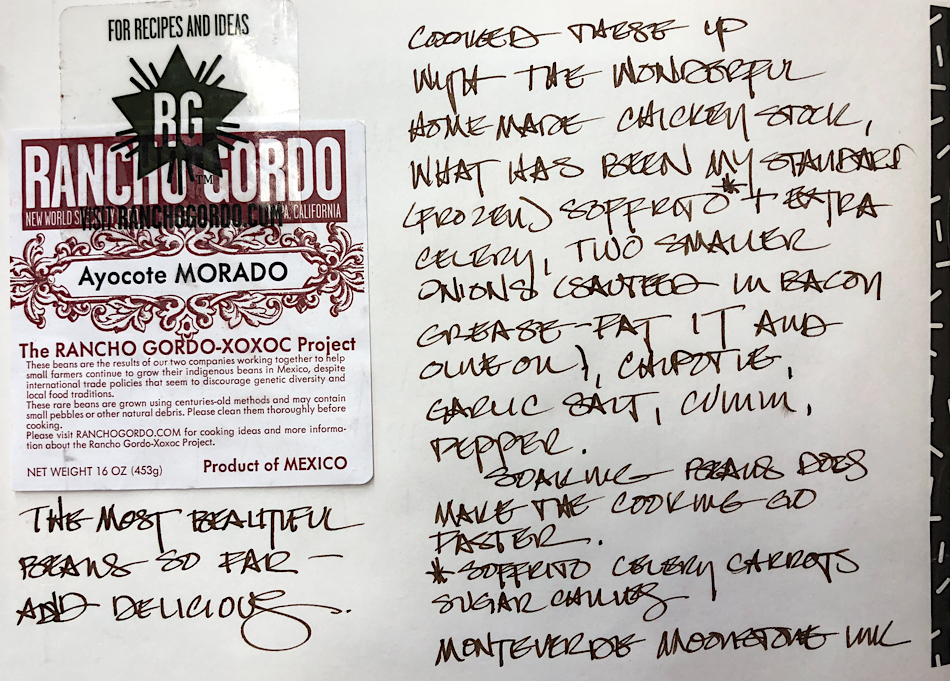 FOR RECIPES AND IDEAS
RG
RANCHO GORDO™
NEW WORLD S VISIT RANCHOGORDO.COM PA, CALIFORNIA
Ayocote MORADO
The RANCHO GORDO-XOXOC Project
These beans are the results of our two companies working together to help
small farmers continue to grow their indigenous beans in Mexico, despite
international trade policies that seem to discourage genetic diversity and
local food traditions.
These rare beans are grown using centuries-old methods and may contain
small pebbles or other natural debris. Please clean them thoroughly before
cooking.
Please visit RANCHOGORDO.COM for cooking ideas and more informa-
tion about the Rancho Gordo-Xoxoc Project.
NET WEIGHT 16 OZ (453g) Product of MEXICO
THE MOST BEAUTIFUL
BEANS SO FAR —
AND DELICIOUS.
COOKED THESE UP
WITH THE WONDERFUL
HOME MADE CHICKEN STOCK,
WHAT HAS BEEN MY STANDARD
(FROZEN) SOFFRITO* + EXTRA
CELERY, TWO SMALLER
ONIONS (SAUTEED IN BACON
GREASE-FAT IT AND
OLIVE OIL), CHIPOTLE,
GARLIC SALT, CUMIN,
PEPPER.
SOAKING BEANS DOES
MAKE THE COOKING GO
FASTER.
*SOFFRITO CELERY CARROTS
SUGAR CHILIES
MONTEVERDE MOONSTONE INK